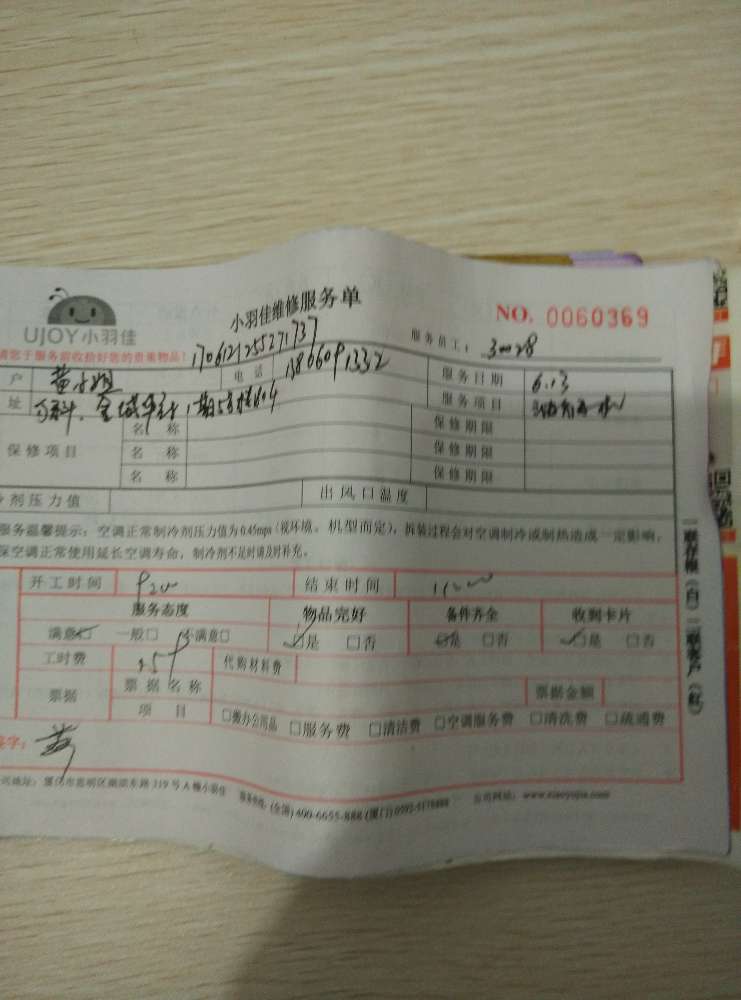 UJOY小羽佳
小羽佳维修服务单
NO. 0060369
请您于服务前收拾好您的贵重物品!
服务员工: 3028
户 黄小姐 电话 服务日期 6.13
址 服务项目
保修项目 名称 保修期限
名称 保修期限
名称 保修期限
冷剂压力值 出风口温度
服务温馨提示: 空调正常制冷剂压力值为0.45mpa (视环境、机型而定), 拆装过程会对空调制冷或制热造成一定影响,
保空调正常使用延长空调寿命, 制冷剂不足时请及时补充。
开工时间 结束时间
服务态度 物品完好 备件齐全 收到卡片
满意□ 一般□ 不满意□ □是 □否 □是 □否 □是 □否
工时费 代购材料费
票据 票据名称 票据金额
项目 □办公用品 □服务费 □清洁费 □空调服务费 □清洗费 □疏通费
签字: 黄
司地址: 厦门市思明区湖滨东路319号A幢小羽佳 服务热线: (全国) 400-6655-888 (厦门) 0592-5178888 公司网站: www.xiaoyujia.com
一联存根(白) 二联客户(红)